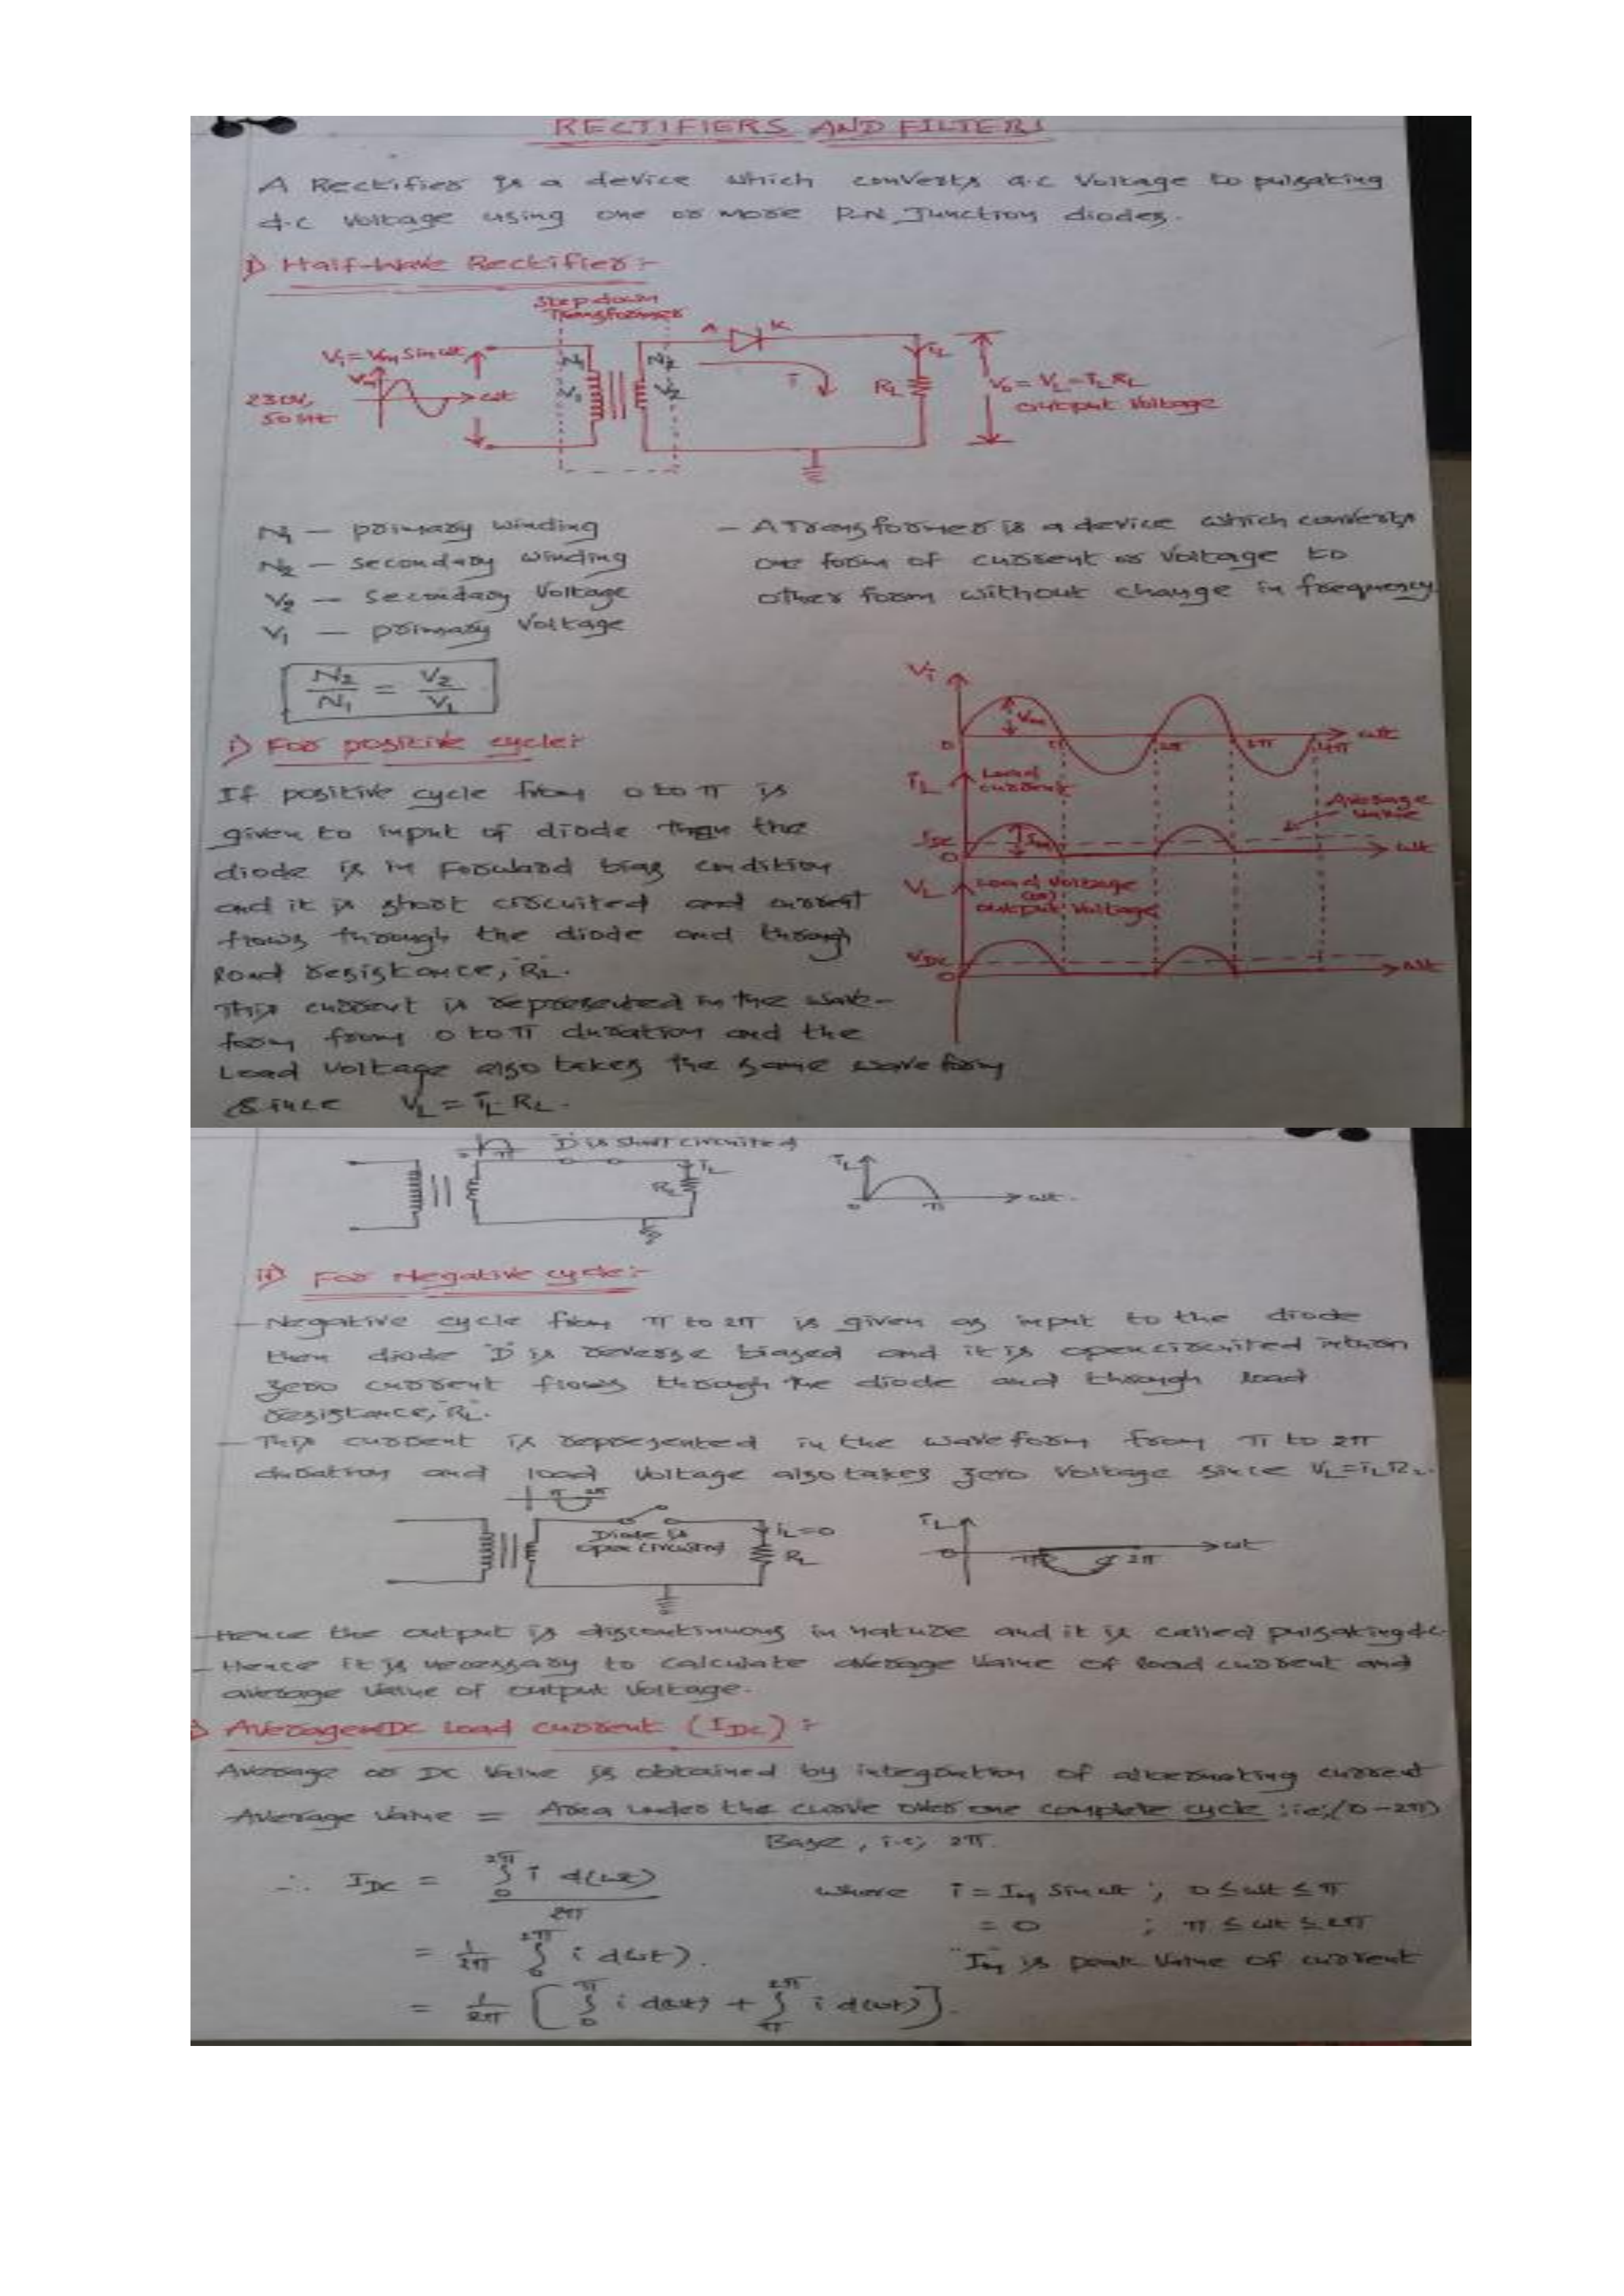 RECTIFIERS AND FILTERS
A Rectifier is a device which converts a.c Voltage to pulsating
d.c Voltage using one or more P.N Junction diodes.
1) Half-Wave Rectifier:-
Step down
Transformer
Vi = Vm Sin ωt
Vm
ωt
230V,
50 Hz
N1
V1
N2
V2
A
K
i
iL
RL
Vo = VL = iL RL
output Voltage
N1 — primary winding
N2 — secondary winding
V2 — secondary Voltage
V1 — primary Voltage
— A Transformer is a device which converts
one form of current or Voltage to
other form without change in frequency
N2/N1 = V2/V1
i) For positive cycle:-
If positive cycle from 0 to π is
given to input of diode then the
diode is in Forward bias condition
and it is short circuited and current
flows through the diode and through
load resistance, RL.
This current is represented in the wave-
form from 0 to π duration and the
Load Voltage also takes the same wave form
Since VL = iL RL.
Vi
Vm
0 π 2π 3π 4π ωt
iL Load current
Average Value
IDC
Im
0
ωt
VL Load Voltage
(or)
output Voltage
VDC
0
ωt
D is short circuited
iL
RL
iL
0 π ωt
ii) For Negative cycle:-
— Negative cycle from π to 2π is given as input to the diode
then diode 'D' is reverse biased and it is open circuited inturn
zero current flows through the diode and through load
resistance, RL.
— This current is represented in the wave form from π to 2π
duration and load Voltage also takes zero Voltage since VL = iL RL.
π 2π
Diode is
open circuited
iL = 0
RL
iL
0 π 2π ωt
— Hence the output is discontinuous in nature and it is called pulsating d.c.
— Hence it is necessary to calculate average Value of load current and
average Value of output Voltage.
Average or DC Load current (IDC) :-
Average or DC Value is obtained by integration of alternating current
Average Value = Area under the curve over one complete cycle ; i.e; (0 – 2π)
Base, i.e; 2π.
∴ IDC = ∫₀^2π i d(ωt) / 2π
where i = Im Sin ωt ; 0 ≤ ωt ≤ π
= 0 ; π ≤ ωt ≤ 2π
= 1/2π ∫₀^2π i d(ωt).
"Im" is peak Value of current
= 1/2π [ ∫₀^π i d(ωt) + ∫π^2π i d(ωt) ].